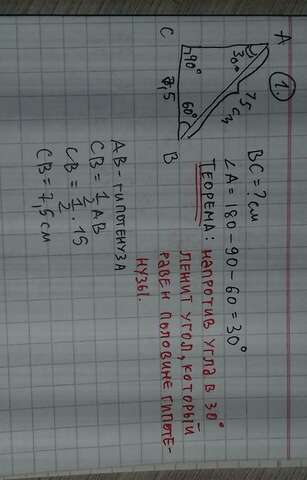 1.
A
C
B
30°
90°
60°
15 см
7,5
BC = ? см
∠A = 180 - 90 - 60 = 30°
ТЕОРЕМА: НАПРОТИВ УГЛА В 30°
ЛЕЖИТ УГОЛ, КОТОРЫЙ
РАВЕН ПОЛОВИНЕ ГИПОТЕ-
НУЗЫ.
AB - ГИПОТЕНУЗА
CB = 1/2 AB
CB = 1/2 · 15
CB = 7,5 см